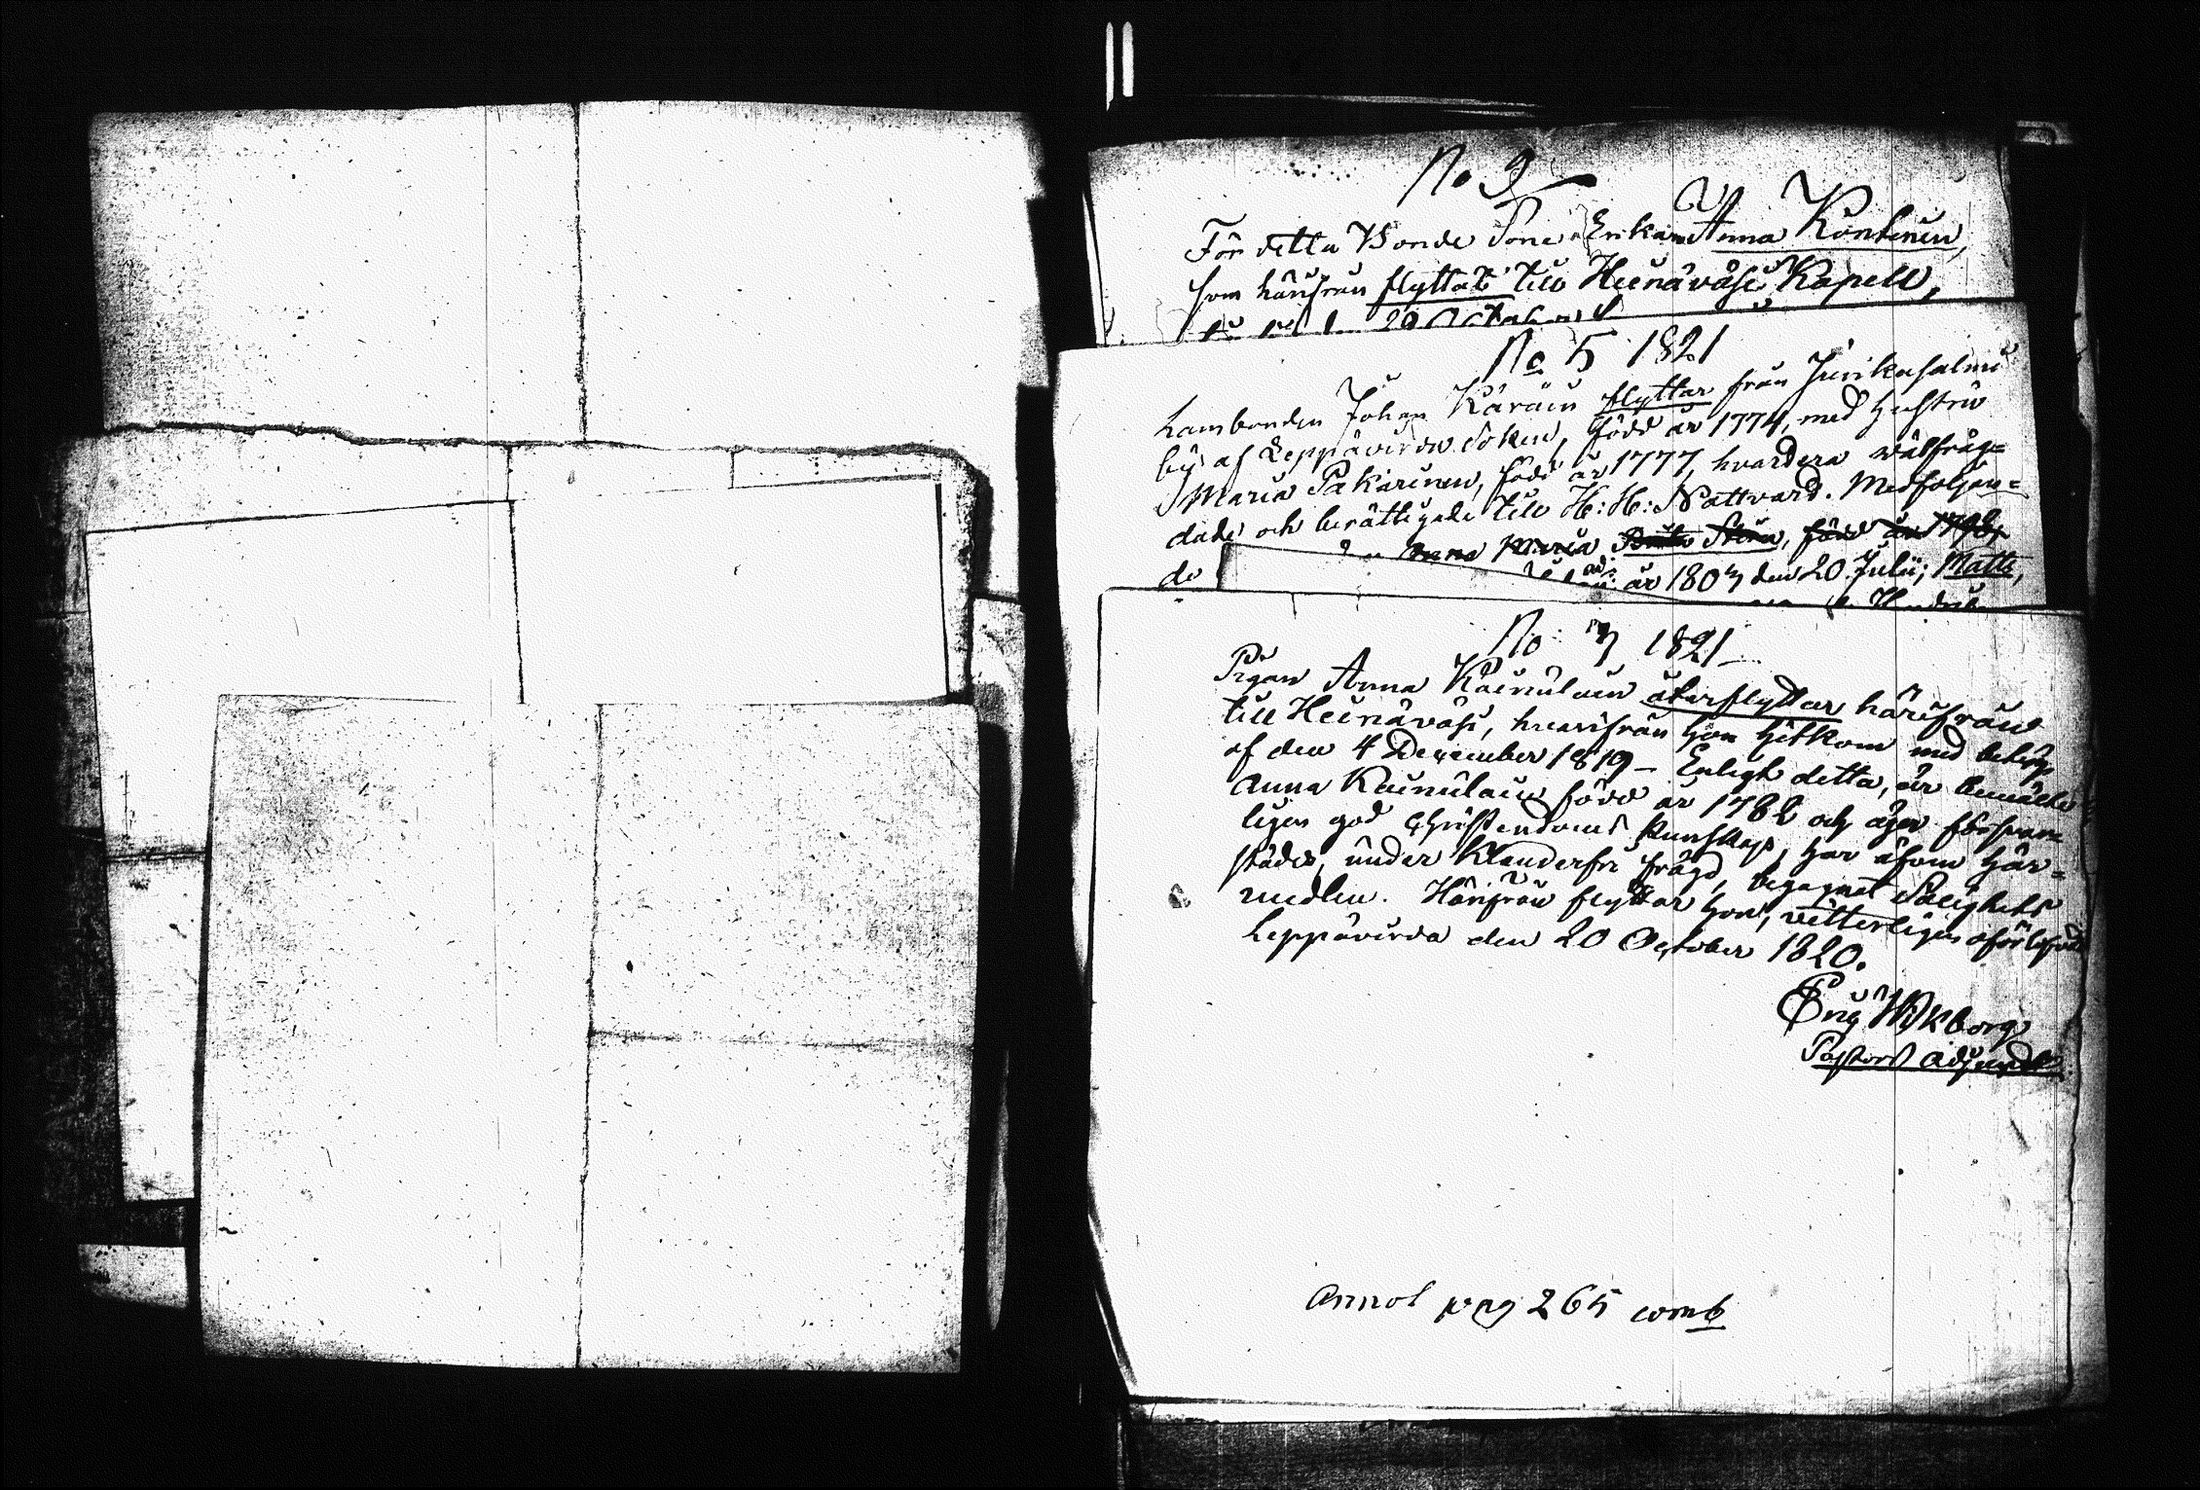 No 9
För detta Bonde Sone Enkan Anna Kontinen,
som härifrån flyttat till Heinäväsi Kapell,
29 October
No 5 1821
Lambonden Johan Käräin flyttar från Jurikasalmi
by af Leppävirda Soken, född år 1774, med hustru
Maria Pakarinen, född år 1777, hvardera wälfräg=
dade och berättigade till H: H: Nattvard. Medföljan=
de Anna Maria Stina, född år
år 1807 den 20 Julii; Matts,
No 7 1821
Pigan Anna Kainulain återflyttar härifrån
till Heinäväsi, hvarifrån hon hitkom med betyg
af den 4 December 1819 – Enligt detta, är bemälte
Anna Kainulain född år 1782 och äger försvar=
ligen god Christendoms kunskap, har äfven här=
städes, under klanderfri frägd, begagnat Salighets
medlen. Härifrån flyttar hon, vitterligen oförlofvad
Leppävirda den 20 October 1820.
Eric Wikborg
Pastors Adjunct
Annot pag 265 comb